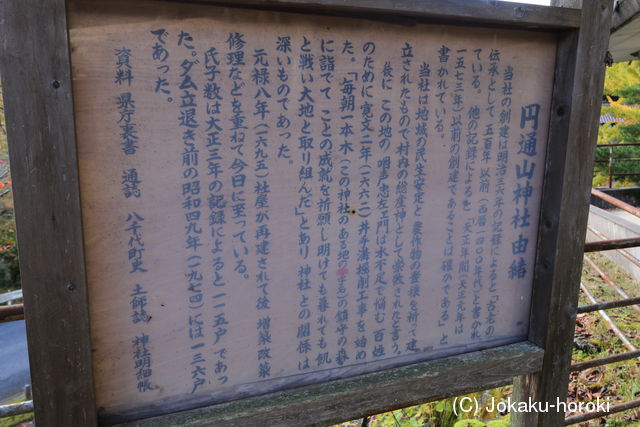 円通山神社由緒
当社の創建は明治三六年の記録によると「宮主の
伝承として五百年以前(西暦一四〇〇年代)と書かれ
ている。他の記録によると「天正年間(天正元年は
一五七三年)以前の創建であることは確かである」と
書かれている。
当社は地域の民生安定と農作物の豊穣を祈って建
立されたもので村内の総産神として崇敬されたと言う。
後にこの地の明声忠左エ門は水不足で悩む百姓
のために寛文二年(一六六二)井手溝堀削工事を始め
た。「毎朝一本木(この神社のある地の字名)の鎮守の森
に詣でてことの成就を祈願し明けても暮れても飢
と戦い大地と取り組んだ」とあり神社との関係は
深いものであった。
元禄八年(一六九五)社屋が再建されて後増築改築
修理などを重ねて今日に至っている。
氏子数は大正三年の記録によると一一五戸であっ
た。ダム立退き前の昭和四九年(一九七四)には一三六戸
であった。
資料 県庁裏書 通誌 八千代町史 土師誌 神社明細帳
(C)Jokaku-horoki